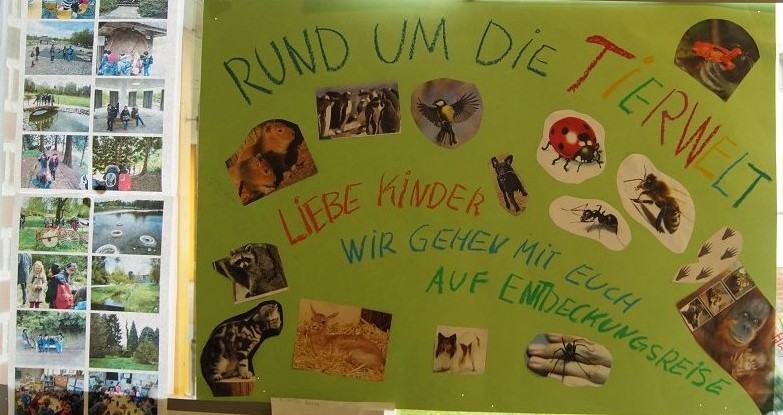 RUND UM DIE
TiERWELT
LiEBE KiNDER
WIR GEHEN MIT EUCH
AUF ENTDECKUNGSREISE